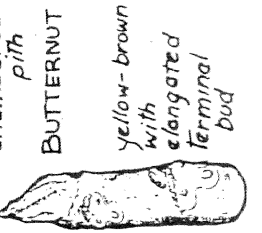 pith
BUTTERNUT
yellow-brown
with
elongated
terminal
bud